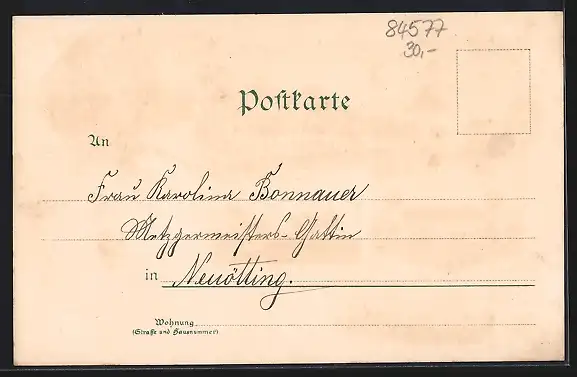 84577
30,-
Postkarte
An
Frau Karolina Bonnauer
Metzgermeisters-Gattin
in Neuötting.
Wohnung
(Straße und Hausnummer)